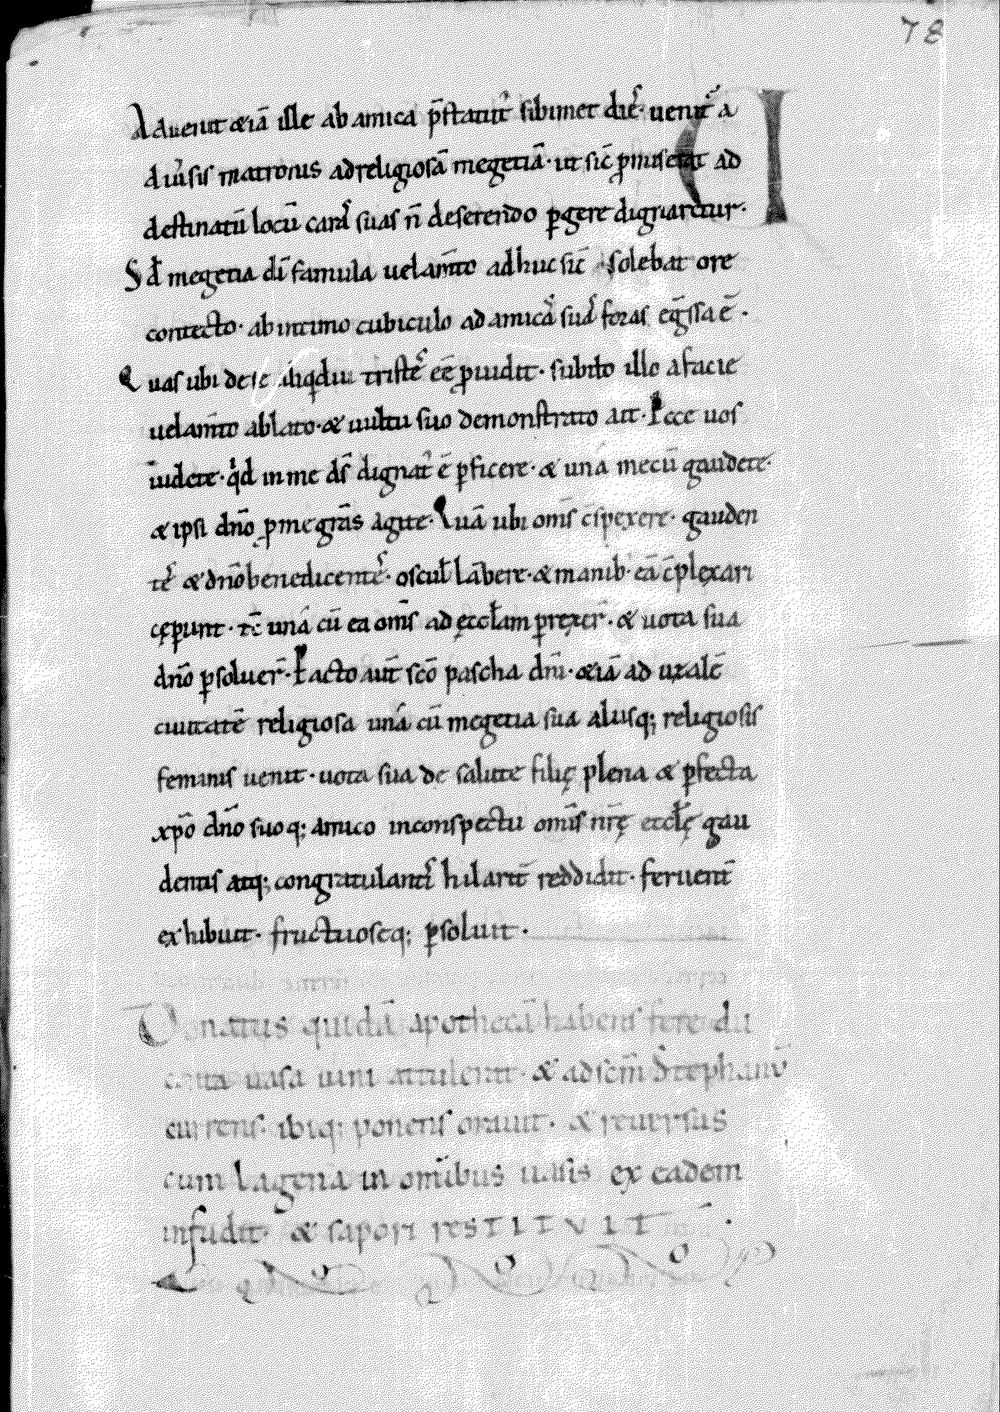 78
Advenit & iā ille ab amica p̄statuť sibimet dieˢ· uenit̄ a
diůsis matronis ad religiosā megetiā· ut sic̄ p̄misetat ad
destinatū locū carāˢ suas n̄ deserendo ꝑgere dignaretur·
Sed megetia dī famula uelam̄to adhuc sic̄ solebat ore
contecto· ab intimo cubiculo ad amicāˢ suāˢ foras eḡssa ē·
Quas ubi de se aliq̄diu tristēˢ eē ꝓuidit· subito illo a facie
uelam̄to ablato· & uultu suo demonstrato ait· Ecce uos
uidete· qđ in me ds̄ dignať ē ꝑficere· & una mecū gaudete·
& ipsi dn̄o p̱ me grās agite· Quā ubi om̄s c̄spexere· gauden
tēˢ & dn̄o benedicentēˢ· oscuł lābere· & manib· eā c̄plexari
cęꝑunt· tc̄ una cū ea om̄s ad ęccłam ꝑrexer̄· & uota sua
dn̄o ꝑsoluer̄· Facto aut̄ scō pascha dn̄i· & iā ad uzalē
ciuitatē religiosa una cū megetia sua aliisq; religiosis
feminis uenit· uota sua de salute filię plena & ꝑfecta
xp̄o dn̄o suoq; amico in conspectu om̄is nr̄ę eccłę gau
dentis atq; congratulantiˢ hilarit̄ reddidit· feruent̄
exhibuit· fructuoseq; ꝑsoluit·
Donatus quidā apothecā habens fere du
centa uasa uini attulerit· & ad scm̄ Stephanū
currens· ibiq; ponens orauit· & reuersus
cum lagena in omībus uasis ex eadem
infudit· & sapori restituit·